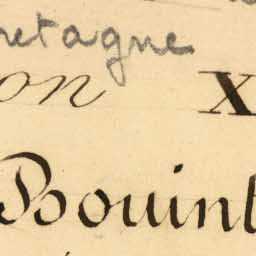 retagne
on X
Bouint